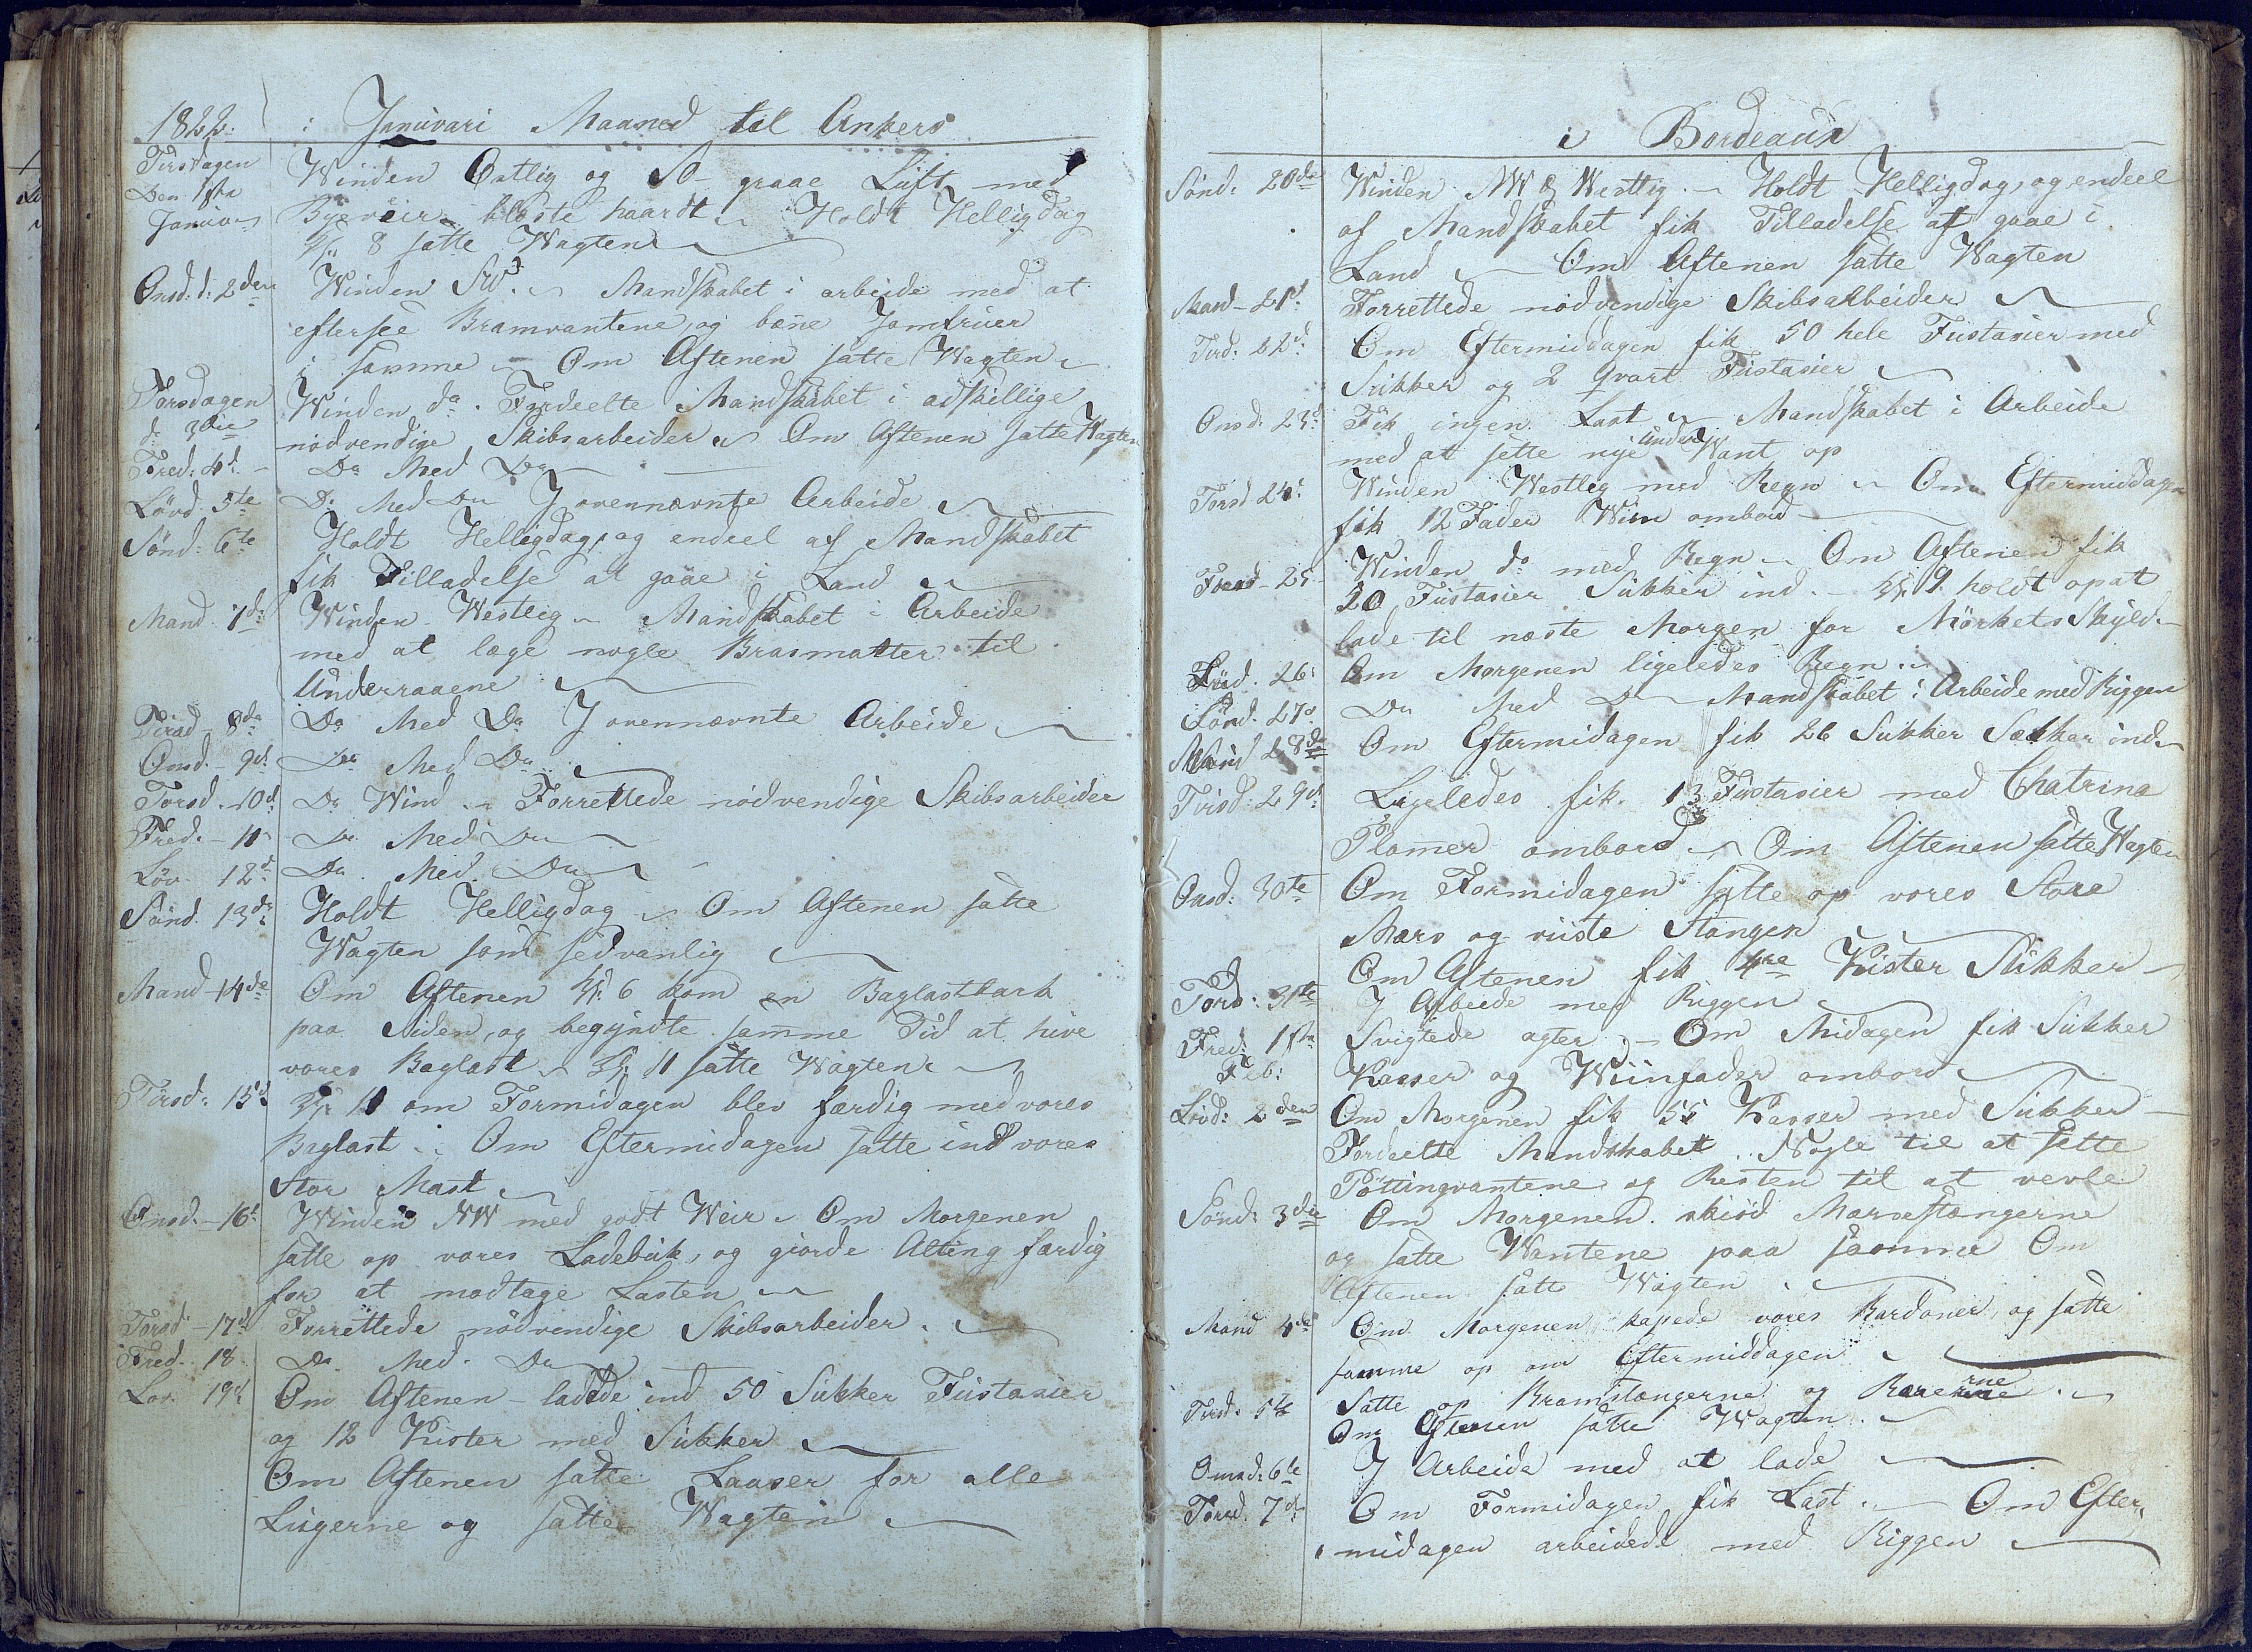 1822. i Januvari Maaned til Ankers
Tirsdagen Winden Ostlig og SO graae Luft med
Den 1ste Januar Bygeveir blæste haardt Holdt Helligdag
Kl: 8 satte Wagten
Onsd: d: 2den Winden SW. Mandskabet i arbeide med at
eftersee Bramvantene, og bene Jomfruer
i samme Om Aftenen satte Wagten
Torsdagen Winden do. Fordeelte Mandskabet i adskillige
d: 3die nödvendige Skibsarbeider Om Aftenen satte Wagten
Fred: 4d. Do Med Do
Lövd 5te Do Med Do I ovennævnte Arbeide
Sönd: 6te Holdt Helligdag, og endeel af Mandskabet
fik Tilladelse at gaae i Land
Mand 7d: Winden Westlig Mandskabet i Arbeide
med at læge nogle Brasmatter til
Underraaene
Tirsd 8de Do Med Do I ovennævnte Arbeide
Onsd. 9d Do Med Do
Torsd. 10d Do Wind. Forrettede nödvendige Skibsarbeider
Fred. 11 Do Med Do
Löv. 12d Do Med Do
Sönd. 13de Holdt Helligdag Om Aftenen satte
Wagten som sedvanlig
Mand 14de Om Aftenen Kl: 6 kom en Baglastbark
paa Siden, og begyndte samme Tid at hive
vores Baglast Kl: 11 satte Wagten
Torsd: 15d Kl: 11 om Formidagen blev færdig med vores
Baglast Om Eftermidagen satte ind vores
Stor Mast
Onsd. 16d Winden NW med godt Weir Om Morgenen
satte op vores Ladebuk, og giorde Alting færdig
for at modtage Lasten
Torsd 17d Forrettede nödvendige Skibsarbeider.
Fred. 18 Do Med Do
Lov. 19d Om Aftenen ladede ind 50 Sukker Fustasier
og 12 Kister med Sukker
Om Aftenen satte Laaser for alle
Lugerne og satte Wagten
i Bordeaux
Sönd: 20de Winden NW & Westlig. Holdt Helligdag, og endeel
af Mandskabet fik Tilladelse at gaae i
Land Om Aftenen satte Wagten
Mand 21d Forrettede nödvendige Skibsarbeider
Tird: 22d Om Eftermiddagen fik 50 hele Fustasier med
Sukker og 2 Qvart Fustasier
Onsd. 23d Fik ingen Last Mandskabet i Arbeide
med at sette nye Under Want op
Torsd 24d Winden Westlig med Regn Om Eftermiddagen
fik 12 Fader Wiin ombord
Fred 25 Winden do med Regn Om Aftenen fik
20 Fustasier Sukker ind. Kl: 9 holdt op at
lade til næste Morgen for Mörkets Skyld
26: Om Morgenen ligeledes Regn.
Sönd. 27d Do Med Do Mandskabet i Arbeide med Riggen
Mand 28de Om Eftermidagen fik 26 Sukker Sækker ind
Tirsd: 29d Ligeledes fik 13 Fustasier med Chatrina
Plomer ombord Om Aftenen satte Wagten
Onsd: 30te Om Formidagen satte op vores Store
Mærs og Stangen
Om Aftenen fik 4re Kister Sukker
Tord: 31te I Arbeide med Riggen
Fred: 1ste Svigtede agter, Om Midagen fik Sukker
Feb: Kasser og Wiinfader ombord
Lövd: 2den Om Morgenen fik 55 Kasser med Sukker
Fordeelte Mandskabet. Nogle til at sette
Pöttingvantene og Resten til at vevle
Sönd: 3die Om Morgenen skiöd Mærsestængerne
og satte Wantene paa samme Om
Aftenen satte Wagten
Mand 4de Om Morgenen kapede vores Bardoner, og satte
samme op om Eftermiddagen
Tirsd. 5te Satte op Bramstængerne og Raaerne
Om Aftenen satte Wagten.
Onsd: 6te I Arbeide med at lade
Torsd. 7de Om Formidagen fik Last. Om Efter,
midagen arbeidede med Riggen